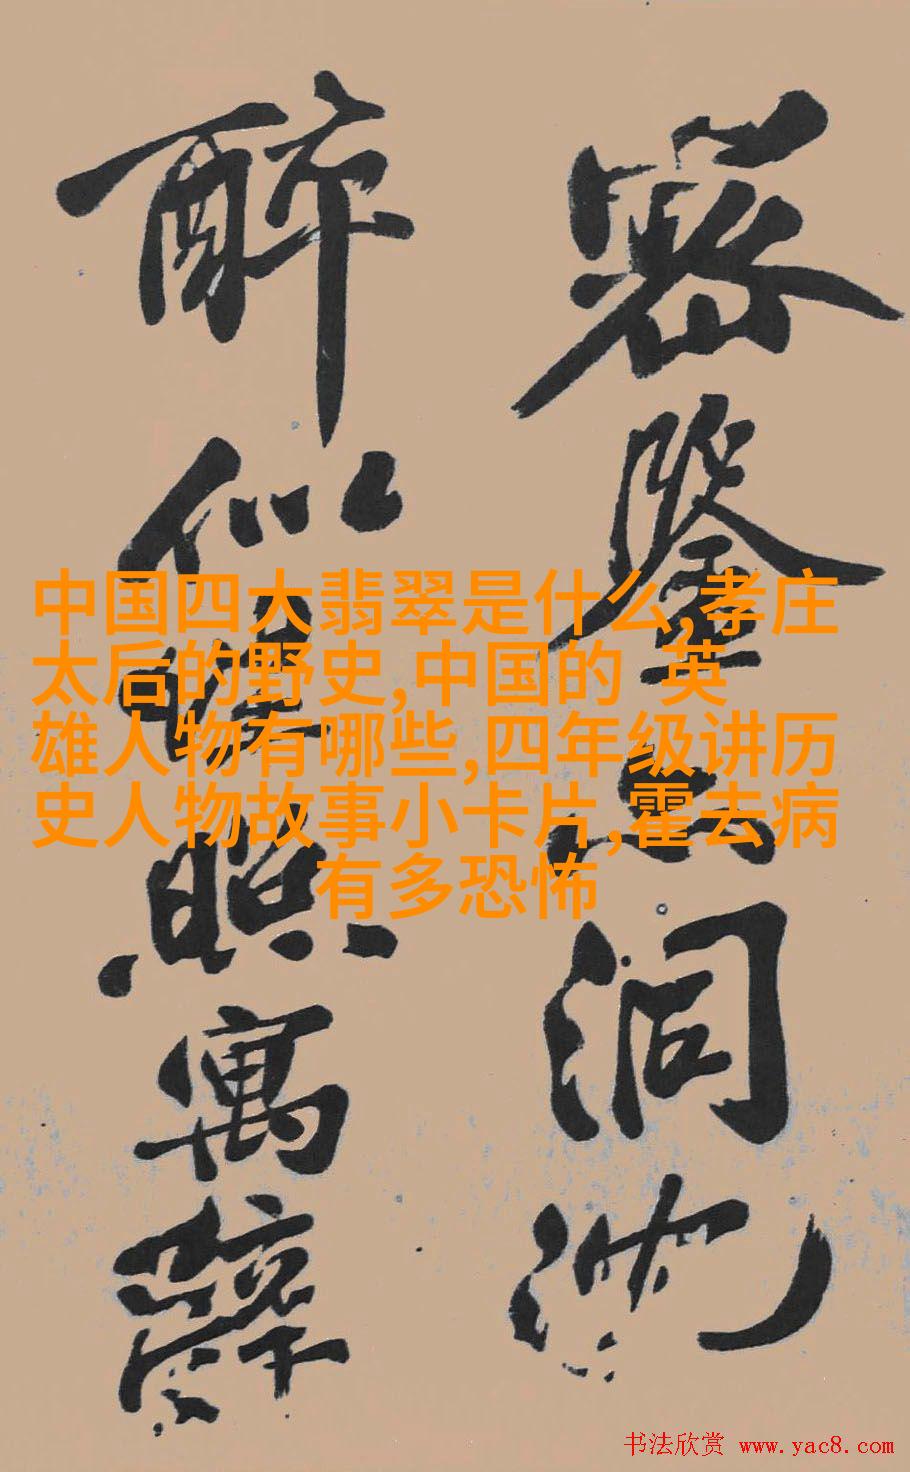 密鑒洞
醉似照寓辭
中国四大翡翠是什么,孝庄
太后的野史,中国的 英
雄人物有哪些,四年级讲历
史人物故事小卡片,霍去病
有多恐怖
书法欣赏 www.yac8.com